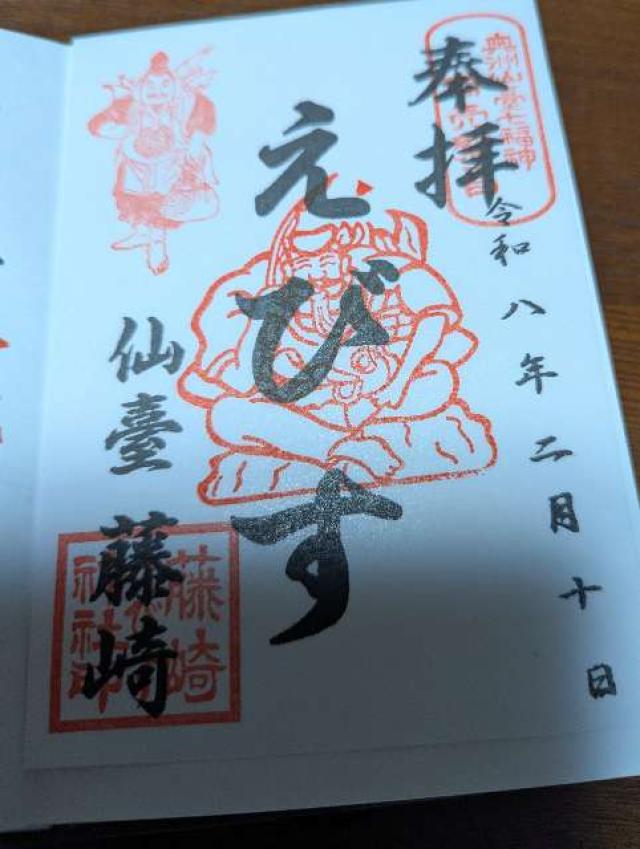 奉拝
奥州仙臺七福神
令和八年二月十日
えびす
仙臺 藤崎
藤崎